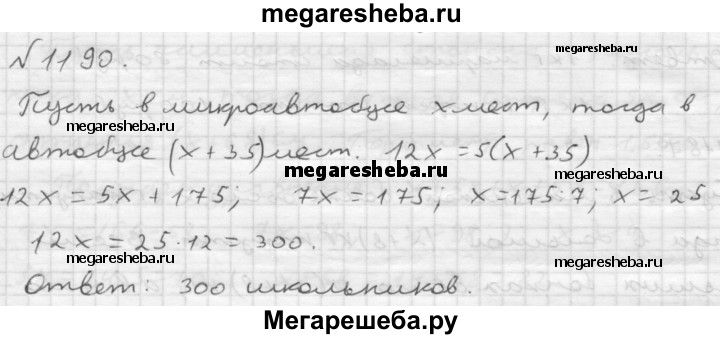 megaresheba.ru
№1190.
megaresheba.ru
Пусть в микроавтобусе x мест, тогда в
megaresheba.ru
автобусе (x + 35) мест. 12x = 5(x + 35)
megaresheba.ru
12x = 5x + 175; 7x = 175; x = 175:7; x = 25
12x = 25·12 = 300.
megaresheba.ru
megaresheba.ru
Ответ: 300 школьников.
Мегарешеба.ру